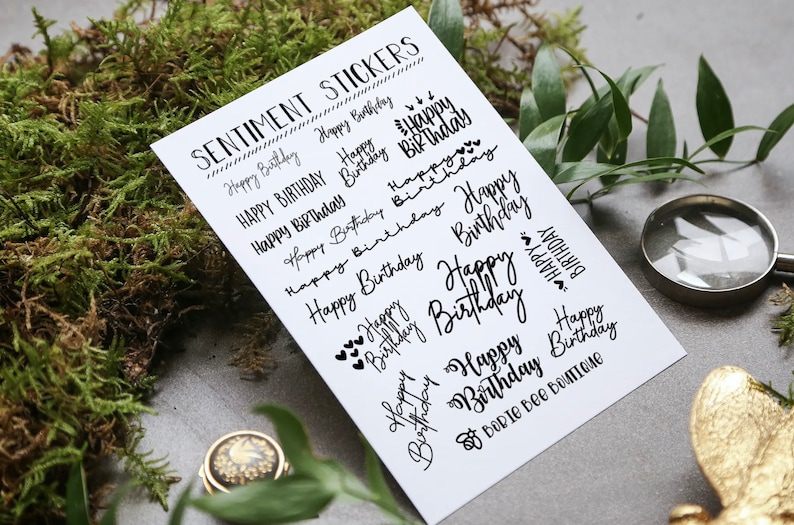 SENTIMENT STICKERS
Happy Birthday
Happy Birthday
Happy
Birthday
HAPPY BIRTHDAY
Happy
Birthday
Happy Birthday
Happy
Birthday
Happy Birthday
Happy Birthday
Happy
Birthday
Happy Birthday
Happy
Birthday
HAPPY
BIRTHDAY
Happy
Birthday
Happy
Birthday
Happy
Birthday
Happy
Birthday
BEE BOUTIQUE